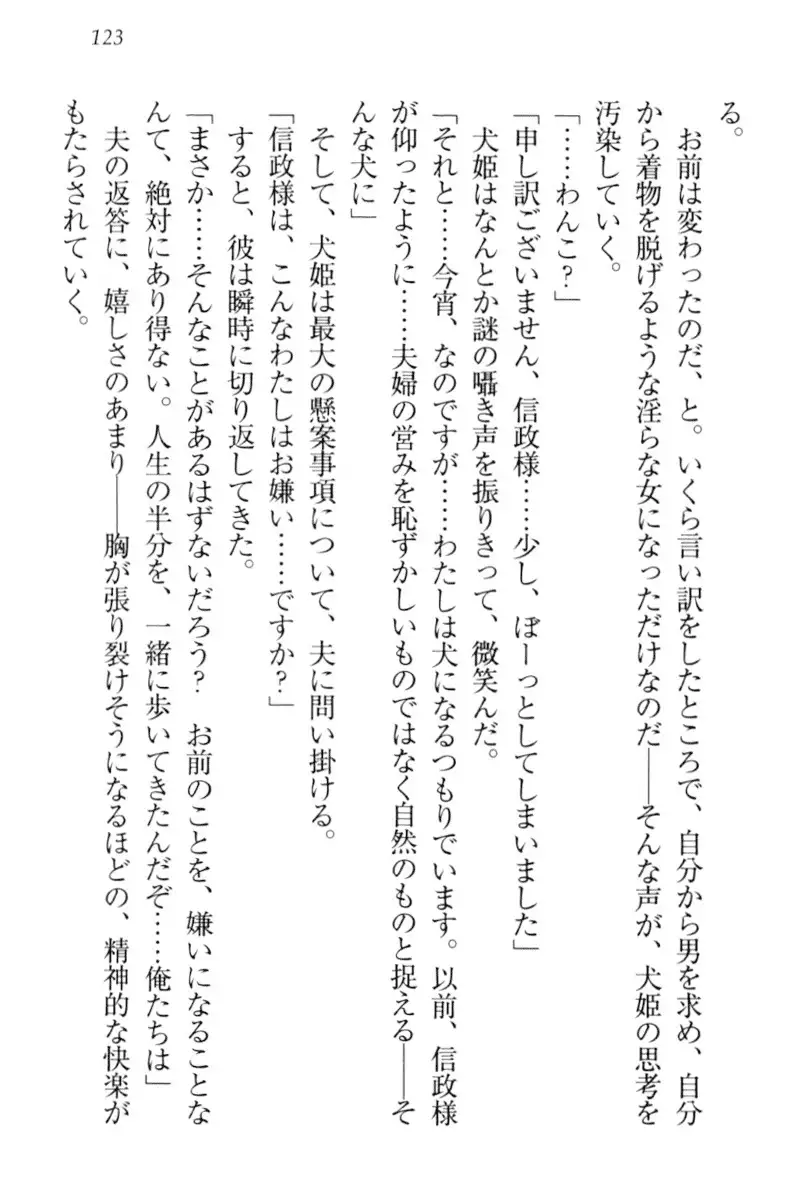 123
る。
　お前は変わったのだ、と。いくら言い訳をしたところで、自分から男を求め、自分
から着物を脱げるような淫らな女になっただけなのだ――そんな声が、犬姫の思考を
汚染していく。
「……わんこ？」
「申し訳ございません、信政様……少し、ぼーっとしてしまいました」
　犬姫はなんとか謎の囁き声を振りきって、微笑んだ。
「それと……今宵、なのですが……わたしは犬になるつもりでいます。以前、信政様
が仰ったように……夫婦の営みを恥ずかしいものではなく自然のものと捉える――そ
んな犬に」
　そして、犬姫は最大の懸案事項について、夫に問い掛ける。
「信政様は、こんなわたしはお嫌い……ですか？」
　すると、彼は瞬時に切り返してきた。
「まさか……そんなことがあるはずないだろう？　お前のことを、嫌いになることな
んて、絶対にあり得ない。人生の半分を、一緒に歩いてきたんだぞ……俺たちは」
　夫の返答に、嬉しさのあまり――胸が張り裂けそうになるほどの、精神的な快楽が
もたらされていく。